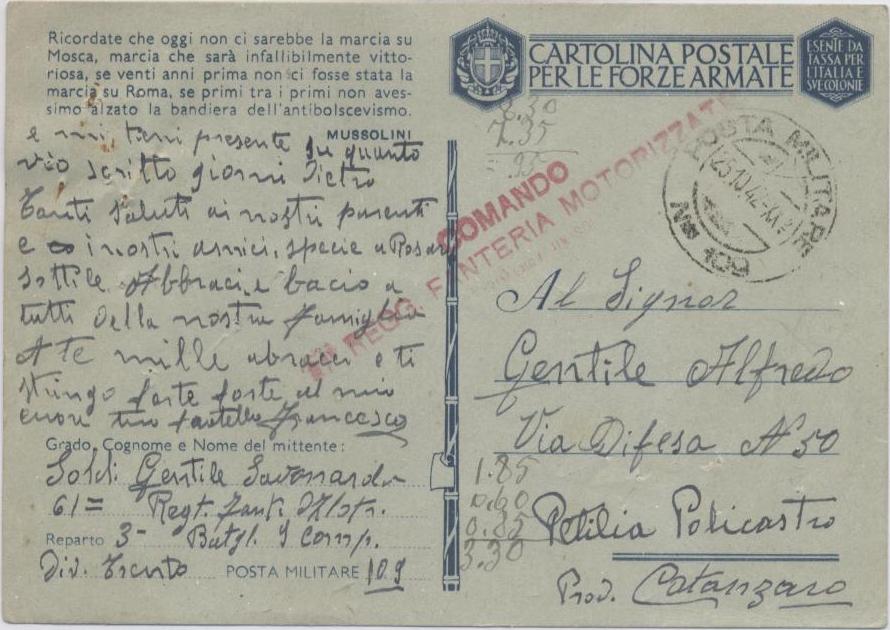 Ricordate che oggi non ci sarebbe la marcia su
Mosca, marcia che sarà infallibilmente vitto-
riosa, se venti anni prima non ci fosse stata la
marcia su Roma, se primi tra i primi non aves-
simo alzato la bandiera dell'antibolscevismo.
MUSSOLINI
e mi tieni presente su quanto
scritto giorni Dietro
Tanti Saluti ai nostri parenti
e i nostri amici, specie a
sottile Abbracci e bacio a
tutti della nostra famiglia
A te mille abracci e ti
stringo forte forte al mio
cuore tuo fratello Francesco
Grado, Cognome e Nome del mittente:
Gentile
61= Regt. Fant.
Reparto 3- Batgl. 9 Comp.
Div. Trento POSTA MILITARE 109
CARTOLINA POSTALE
PER LE FORZE ARMATE
ESENTE DA
TASSA PER
L'ITALIA E
SVE COLONIE
8.30
7.35
95
COMANDO
REGG. FANTERIA MOTORIZZATA
POSTA MILITARE
Nº 109
Al Signor
Gentile Alfredo
Via Difesa Nº 50
1.85
0.60
0.85
3.30
Petilia Policastro
Prov. Catanzaro